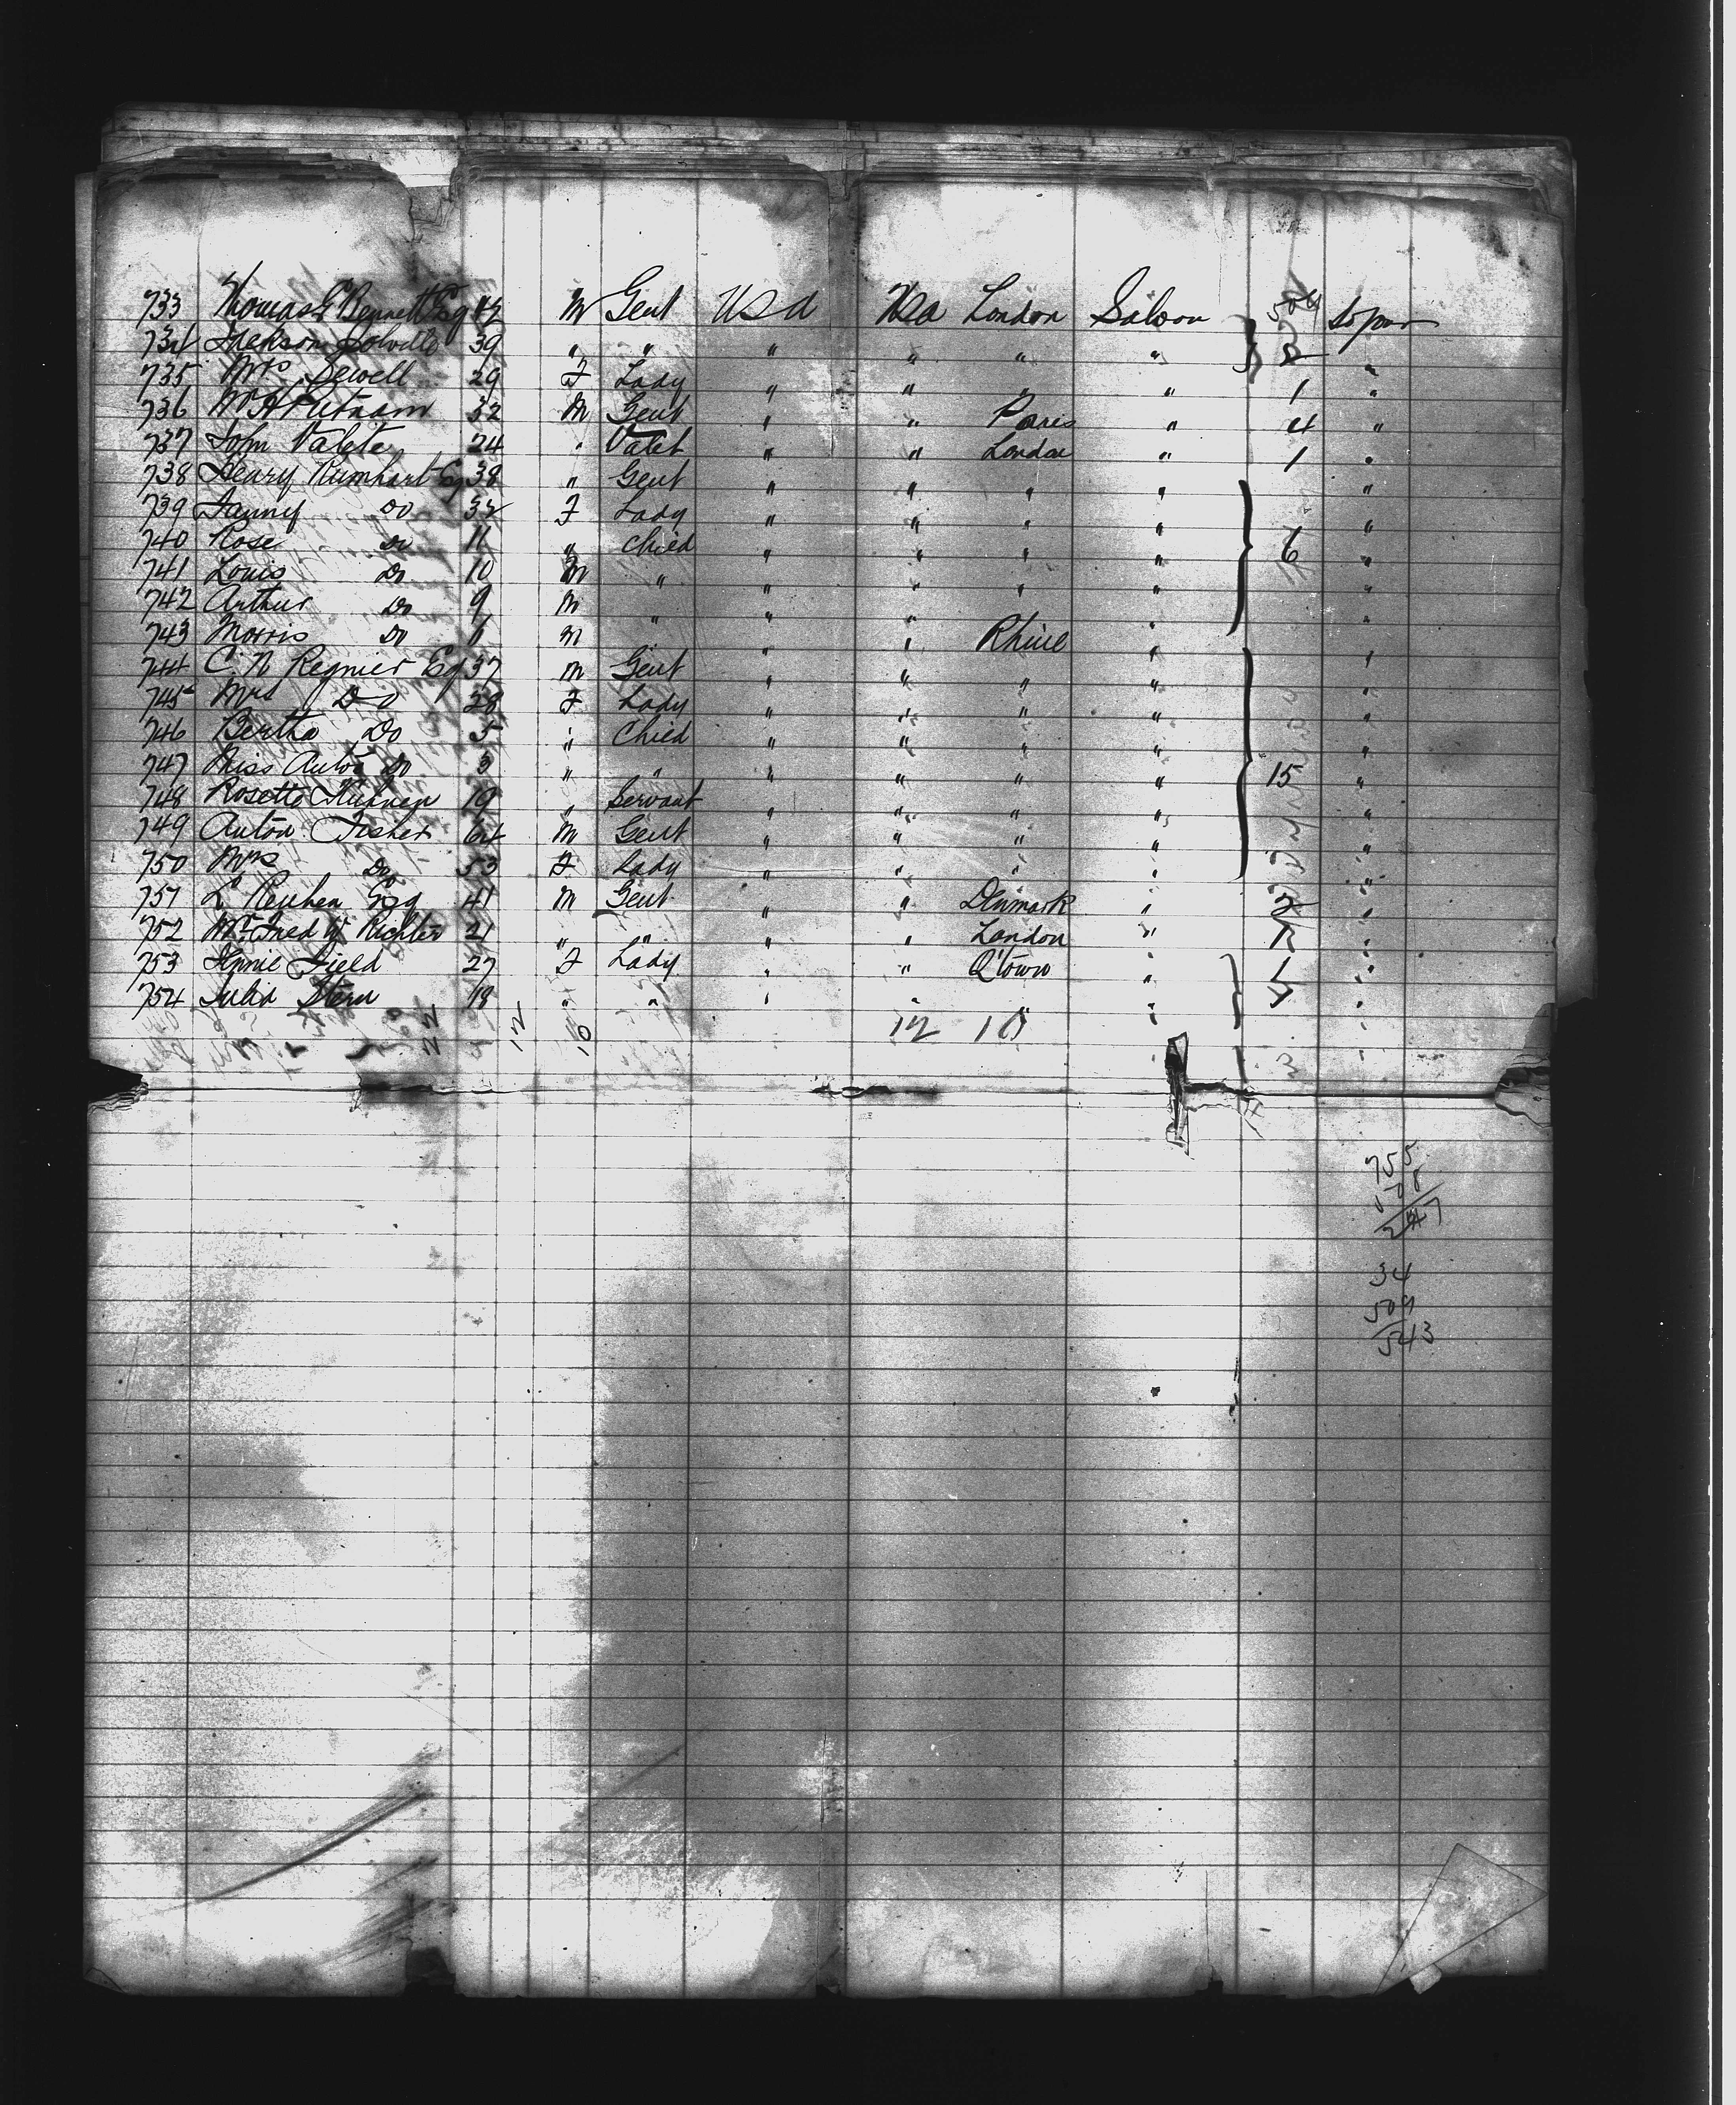 733 Thomas G Bennett Esq 47 M Gent USA USA London Saloon
734 Jackson 39 " " " " " " 2 "
735 Mrs Sewell 29 F Lady " " " 1 "
736 W H Putnam 32 M Gent " " Paris " 4 "
737 John Valete 24 " Valet " " London " 1 "
738 Henry Rumhart Esq 38 " Gent " " " " "
739 Fanny Do 32 F Lady " " " " "
740 Rose Do 11 " Child " " " " 6 "
741 Louis Do 10 M " " " " " "
742 Arthur Do 9 M " " " " "
743 Morris Do M " " Rhine " "
744 C. N Regnier Esq 37 M Gent " " " " "
745 Mrs Do 28 F Lady " " " " "
746 Bertha Do 5 " Child " " " " "
747 Miss Do 3 " " " " " " 15 "
748 Rosette 19 " Servant " " " " "
749 Anton Fisher 64 M Gent " " " " "
750 Mrs Do 53 F Lady " " " " "
751 L Reuben Esq 41 M Gent " " Denmark " 2 "
752 Mr Fred W Richter 21 " " " " London " "
753 Field 27 F Lady " " Q'town " 1 "
754 Julia Stern 18 " " " " " "
22 12 10 12 10
755
508
247
34
509
543